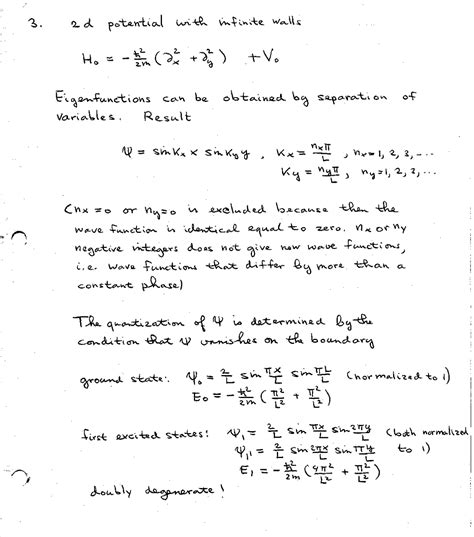 3. 2d potential with infinite walls
H₀ = -ħ²/2m (∂ₓ² + ∂ᵧ²) + V₀
Eigenfunctions can be obtained by separation of
variables. Result
Ψ = sin Kₓ x sin K_y y , Kₓ = nₓπ/L , nₓ=1, 2, 3, ...
K_y = n_yπ/L , n_y=1, 2, 3, ...
(nₓ=0 or n_y=0 is excluded because then the
wave function is identical equal to zero. nₓ or n_y
negative integers does not give new wave functions,
i.e. wave functions that differ by more than a
constant phase)
The quantization of Ψ is determined by the
condition that Ψ vanishes on the boundary
ground state: Ψ₀ = 2/L sin πx/L sin πL/L (normalized to 1)
E₀ = -ħ²/2m (π²/L² + π²/L²)
first excited states: Ψ₁ = 2/L sin πx/L sin 2πy/L (both normalized
Ψ₁' = 2/L sin 2πx/L sin πy/L to 1)
E₁ = -ħ²/2m (4π²/L² + π²/L²)
doubly degenerate!